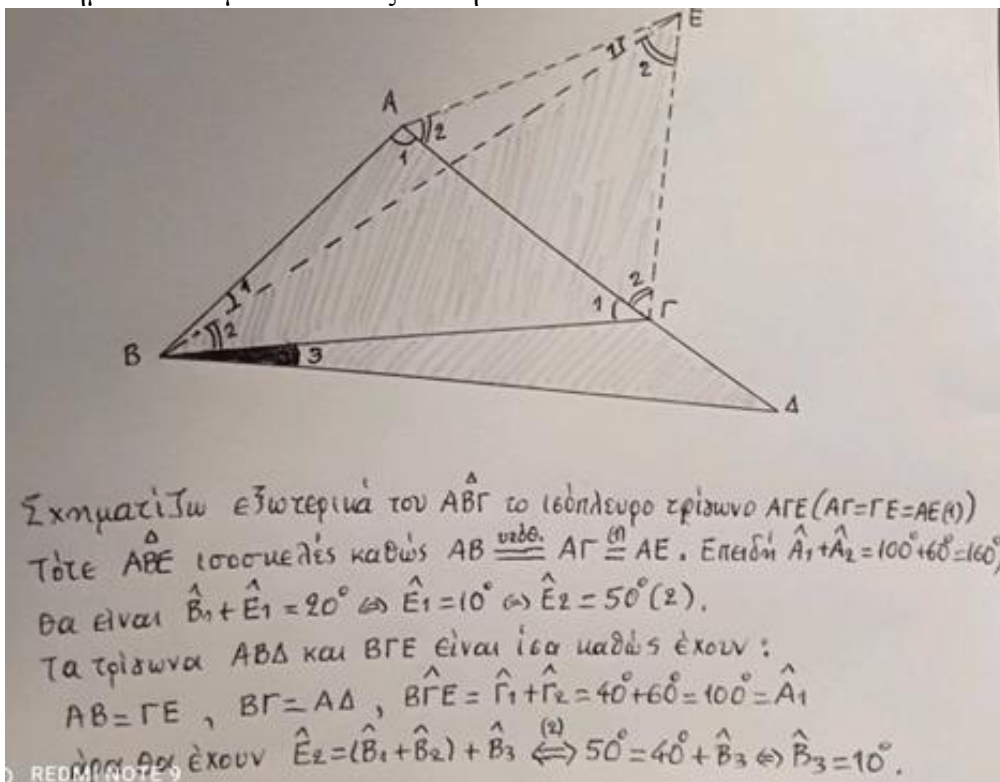 E
1
2
A
2
1
1
2
1
Γ
2
B
3
Δ
Σχηματίζω εξωτερικά του ΑΒ̂Γ το ισόπλευρο τρίγωνο ΑΓΕ (ΑΓ=ΓΕ=ΑΕ(1))
Τότε ΑΒ̂Ε ισοσκελές καθώς ΑΒ =υποθ.= ΑΓ =(1)= ΑΕ. Επειδή Â₁+Â₂=100°+60°=160°,
θα είναι B̂₁+Ê₁=20° ⇔ Ê₁=10° ⇔ Ê₂=50° (2).
Τα τρίγωνα ΑΒΔ και ΒΓΕ είναι ίσα καθώς έχουν:
ΑΒ=ΓΕ , ΒΓ=ΑΔ , ΒΓ̂Ε = Γ̂₁+Γ̂₂=40°+60°=100°=Â₁
άρα θα έχουν Ê₂=(B̂₁+B̂₂)+B̂₃ (2)⇔ 50°=40°+B̂₃ ⇔ B̂₃=10°.
REDMI NOTE 9